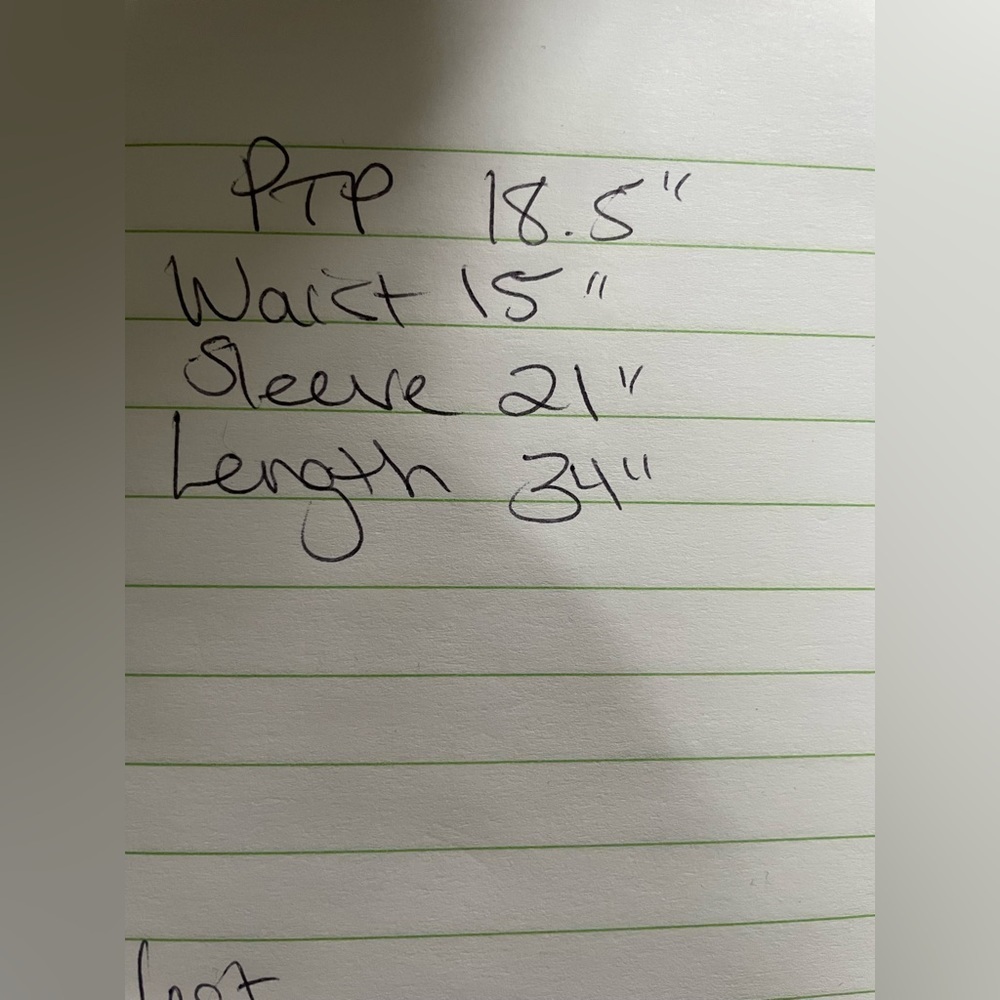 PTP 18.5"
Waist 15"
Sleeve 21"
Length 34"